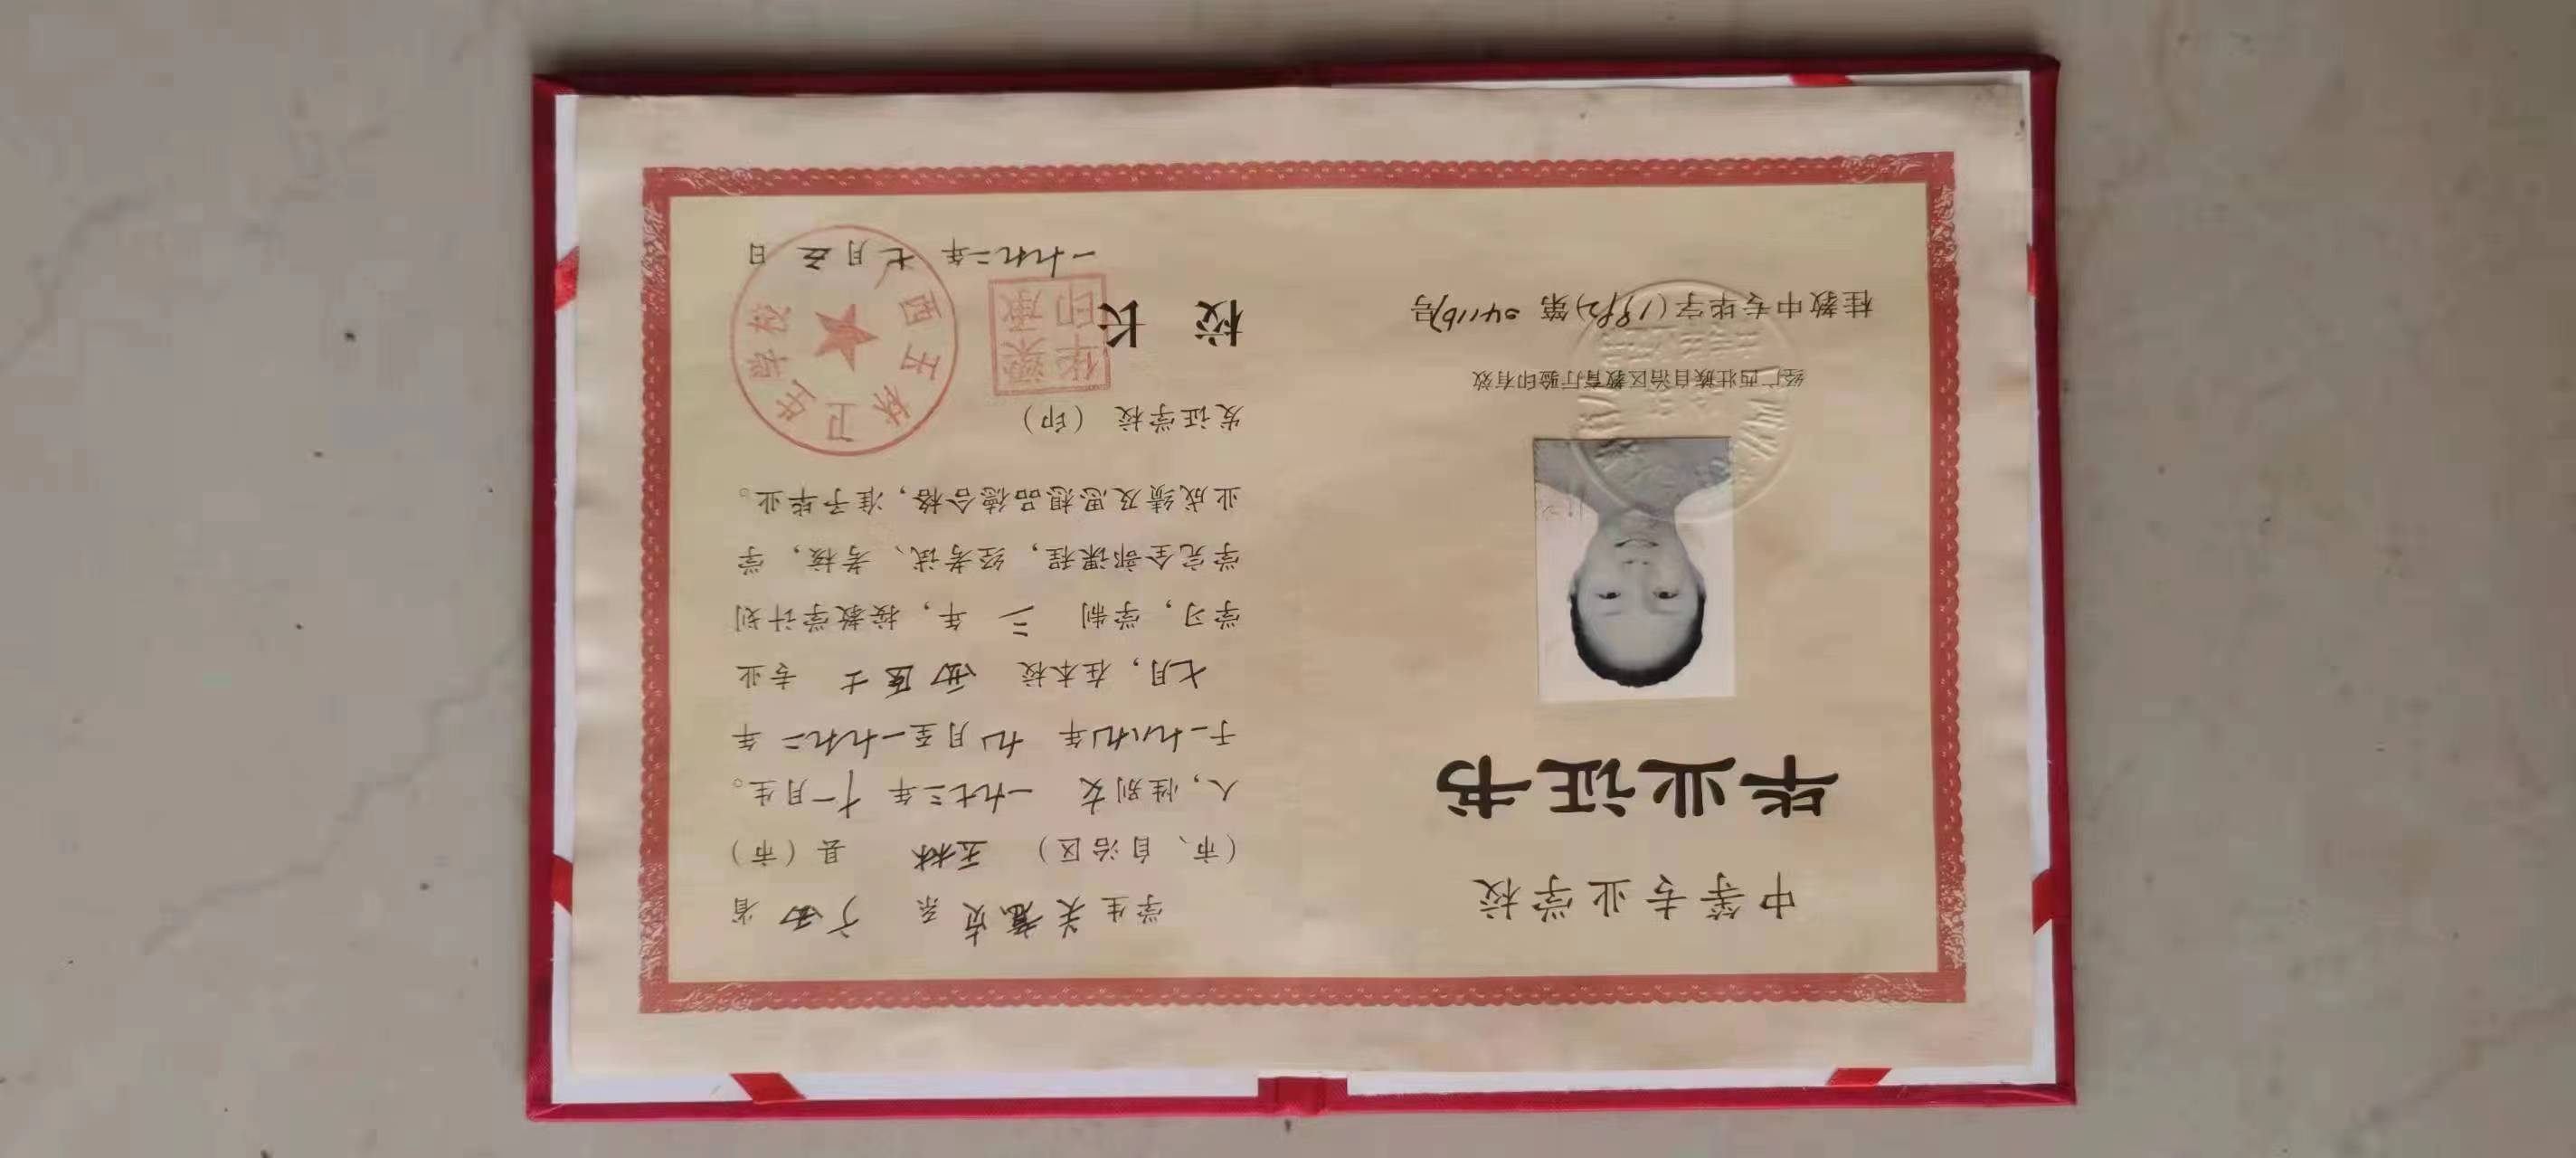 中等专业学校
毕业证书
经广西壮族自治区教育厅验印有效
桂教中专毕字(1992)第 号
学生关 贞 系 广西 省
（市、自治区） 玉林 县（市）
人，性别 女 一九七三年 十一月生。
于一九八九年 九月至一九九二年
七月，在本校 西医士 专业
学习，学制 三 年，按教学计划
学完全部课程，经考试、考核，学
业成绩及思想品德合格，准予毕业。
发证学校（印）
校 长
华梁
印承
广西玉林卫生学校
一九九二年 七月 五 日